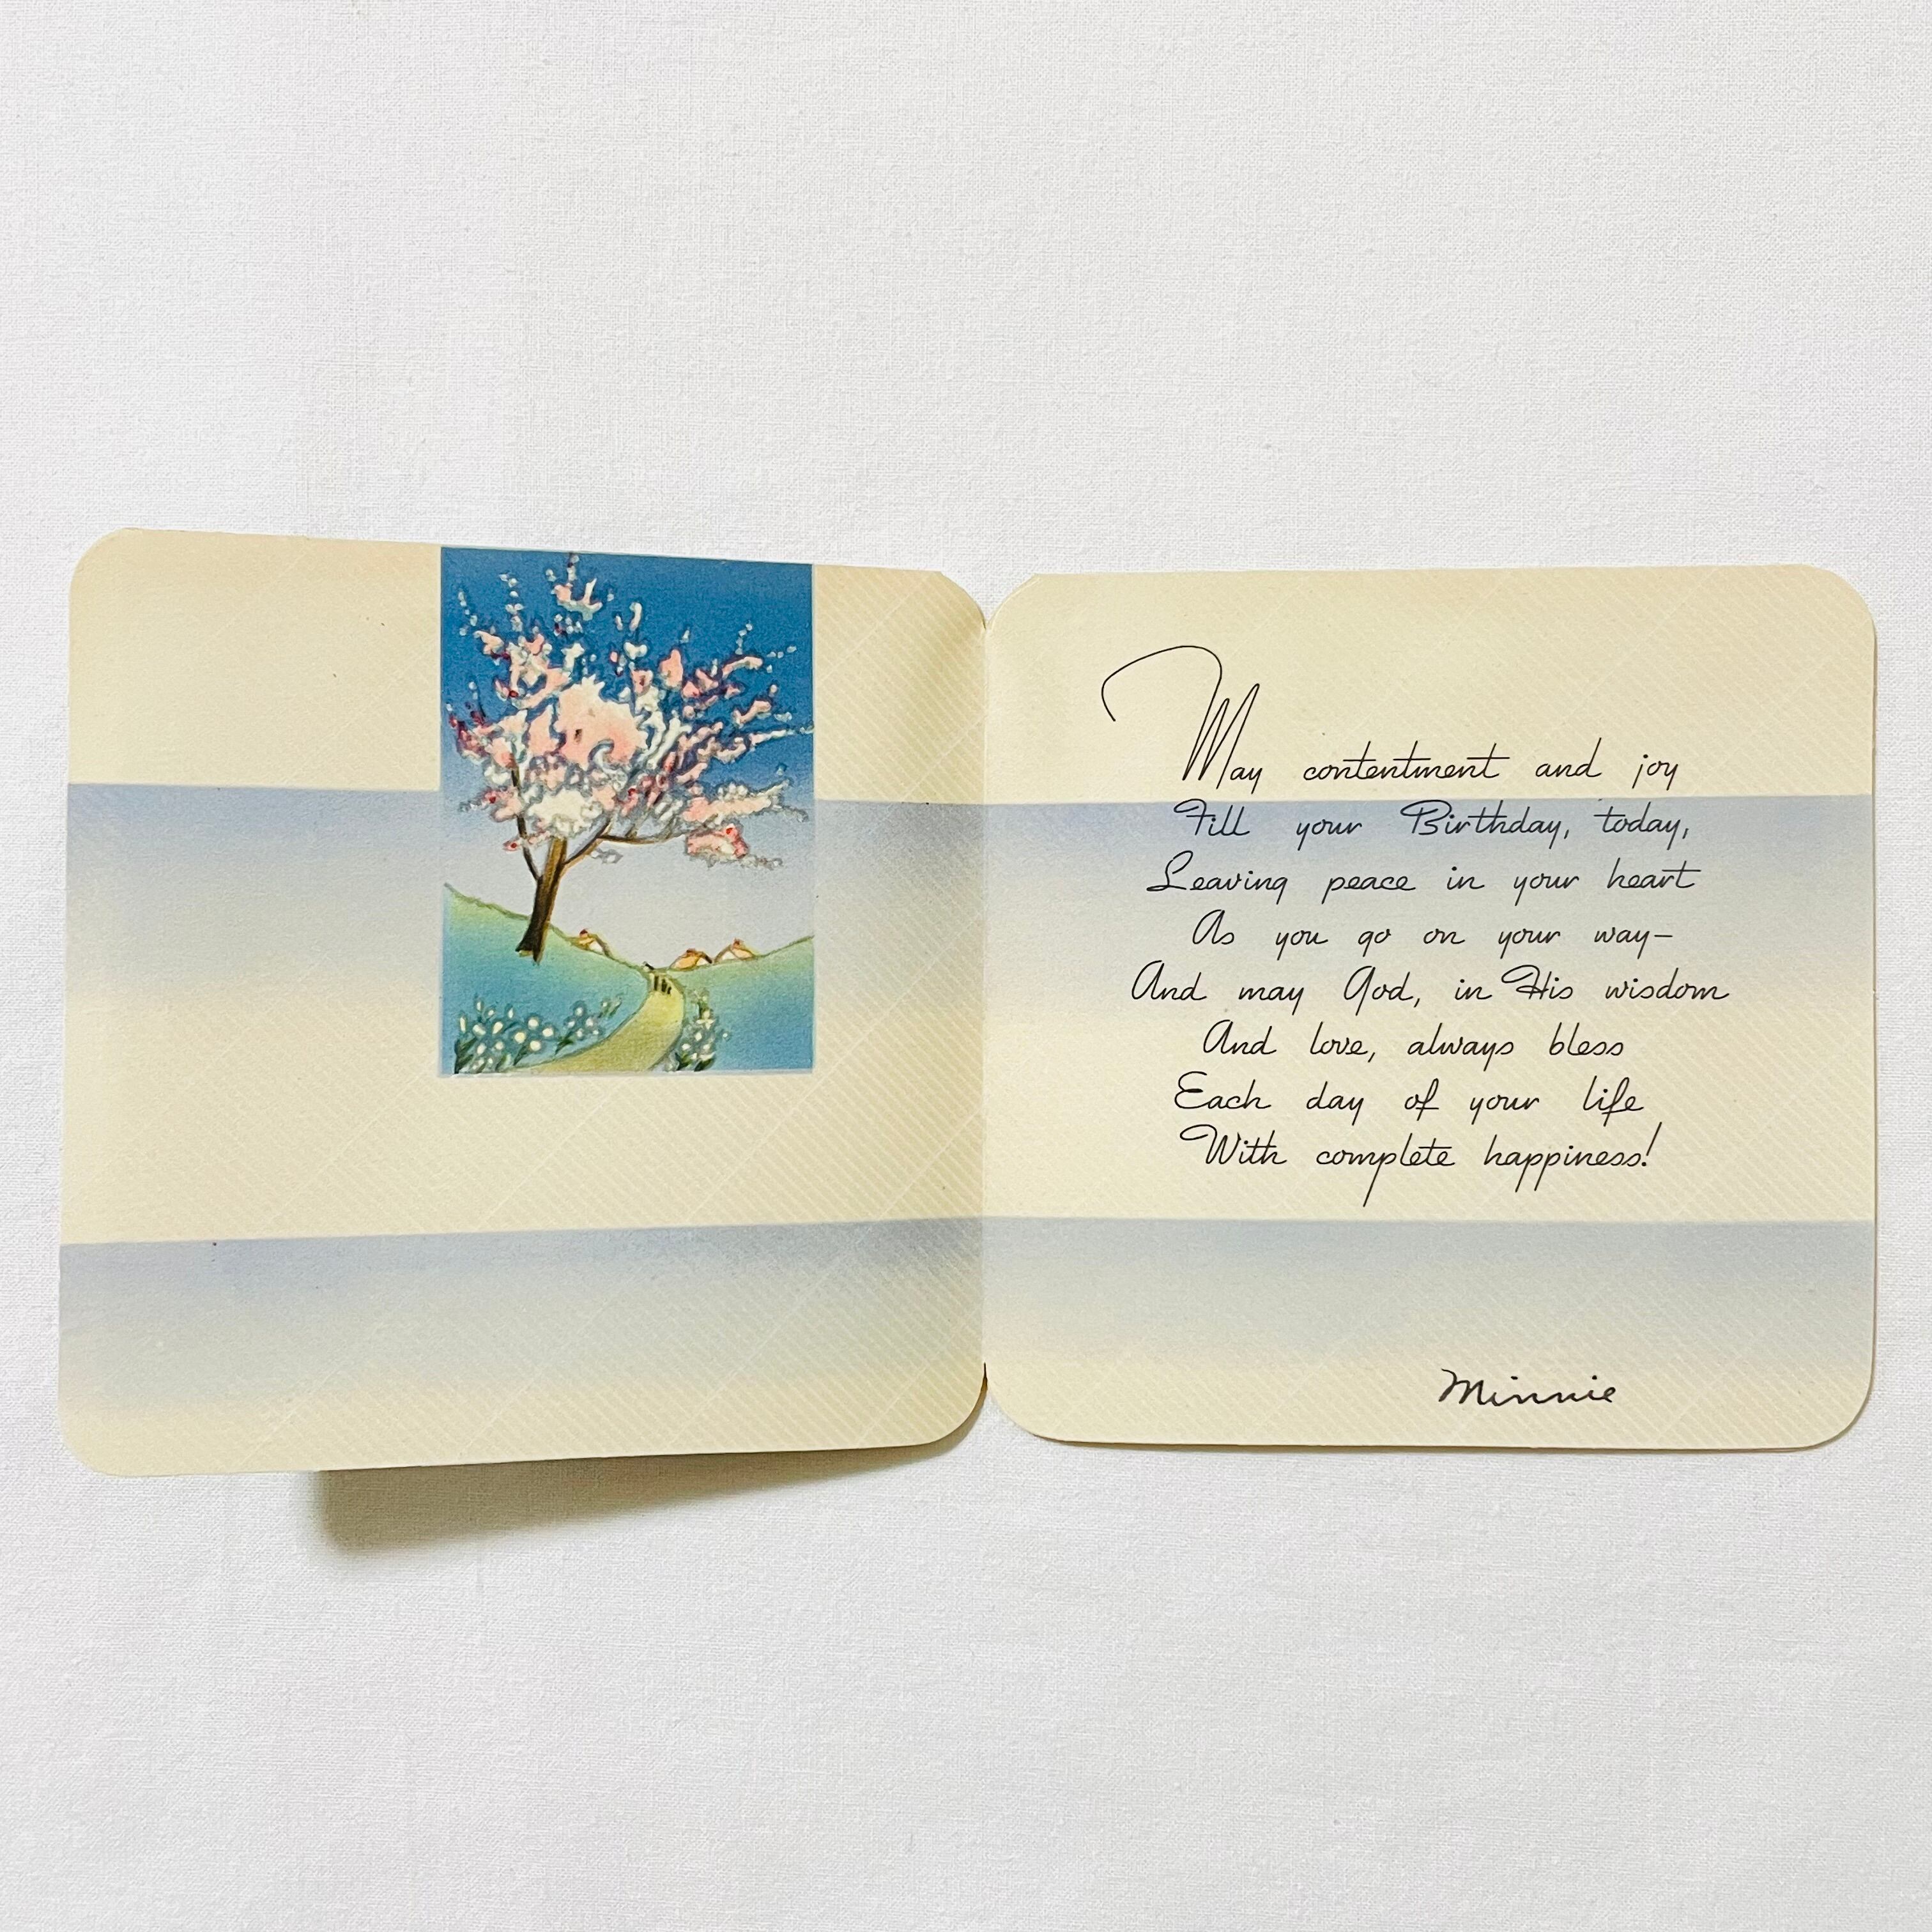 May contentment and joy
Fill your Birthday, today,
Leaving peace in your heart
As you go on your way—
And may God, in His wisdom
And love, always bless
Each day of your life
With complete happiness!
Minnie